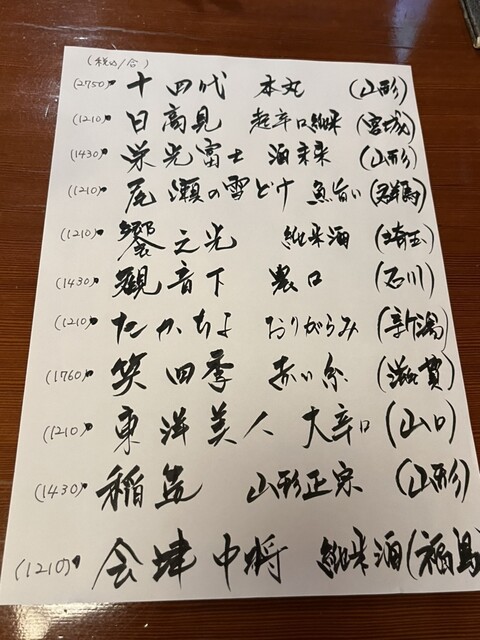 (税込/合)
(2750) 十四代 本丸 (山形)
(1210) 日高見 超辛口純米 (宮城)
(1430) 栄光冨士 酒未来 (山形)
(1210) 尾瀬の雪どけ 魚旨い (群馬)
(1210) 之光 純米酒 (埼玉)
(1430) 観音下 農口 (石川)
(1210) たかちよ おりがらみ (新潟)
(1760) 笑四季 赤い糸 (滋賀)
(1210) 東洋美人 大辛口 (山口)
(1430) 稲造 山形正宗 (山形)
(1210) 会津中将 純米酒 (福島